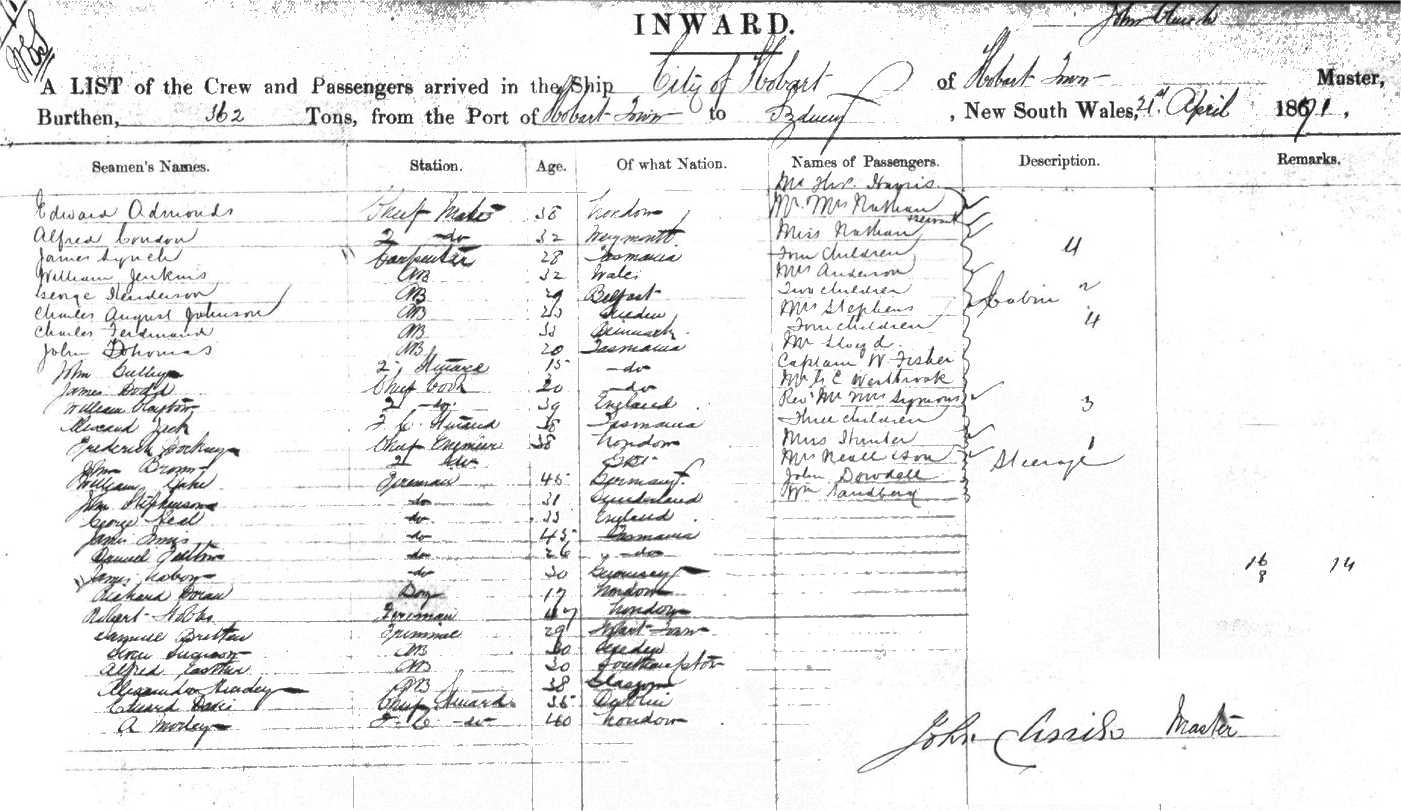 INWARD.
A LIST of the Crew and Passengers arrived in the Ship City of Hobart of Hobart Town Master,
Burthen, 362 Tons, from the Port of Hobart Town to Sydney, New South Wales, 21st April 1871,
Seamen's Names. Station. Age. Of what Nation. Names of Passengers. Description. Remarks.
Harris
Edward Admonds Chief Mate 38 London Mr Mrs Nathan
Servant
Alfred Condon 2 do 32 Weymouth Miss Nathan
James Lynch Carpenter 28 Tasmania Four Children 4
William Jenkins AB 32 Wales Mrs Anderson
George Henderson AB 29 Belfast Two children 2
Charles August Johnson AB Sweden Mrs Stephens Cabin
Charles Ferdinand AB Denmark Four children 4
John Thomas AB 20 Tasmania Mr Lloyd
John 2 Steward 15 do Captain W Fisher
James Dodd Chief Cook 20 do Mr Westbrook
William 2 do 39 England Revd Mr Mrs Symons
Jack F. C. Steward 38 Tasmania Three children 3
Frederick Chief Engineer 38 London Mrs Hunter
John Brown 2 do Mrs Neall & Son 1
William Lake Fireman 45 Germany John Dowdell Steerage
John Stephenson do 31 Sunderland Wm Sandberg
George Neal do 33 England
James Innes do 45 Tasmania
Samuel do 26 do
James do 30 Guernsey 16 14
8
Richard Boy 17 London
Robert Hobbs Fireman 47 London
Samuel Britten Trimmer 29 Hobart Town
AB 30 Sweden
Alfred AB 30 Southampton
Alexander AB 38 Glasgow
Edward Davis Chief Steward 35 Dublin
A Morley F. C. do 40 London
John Master